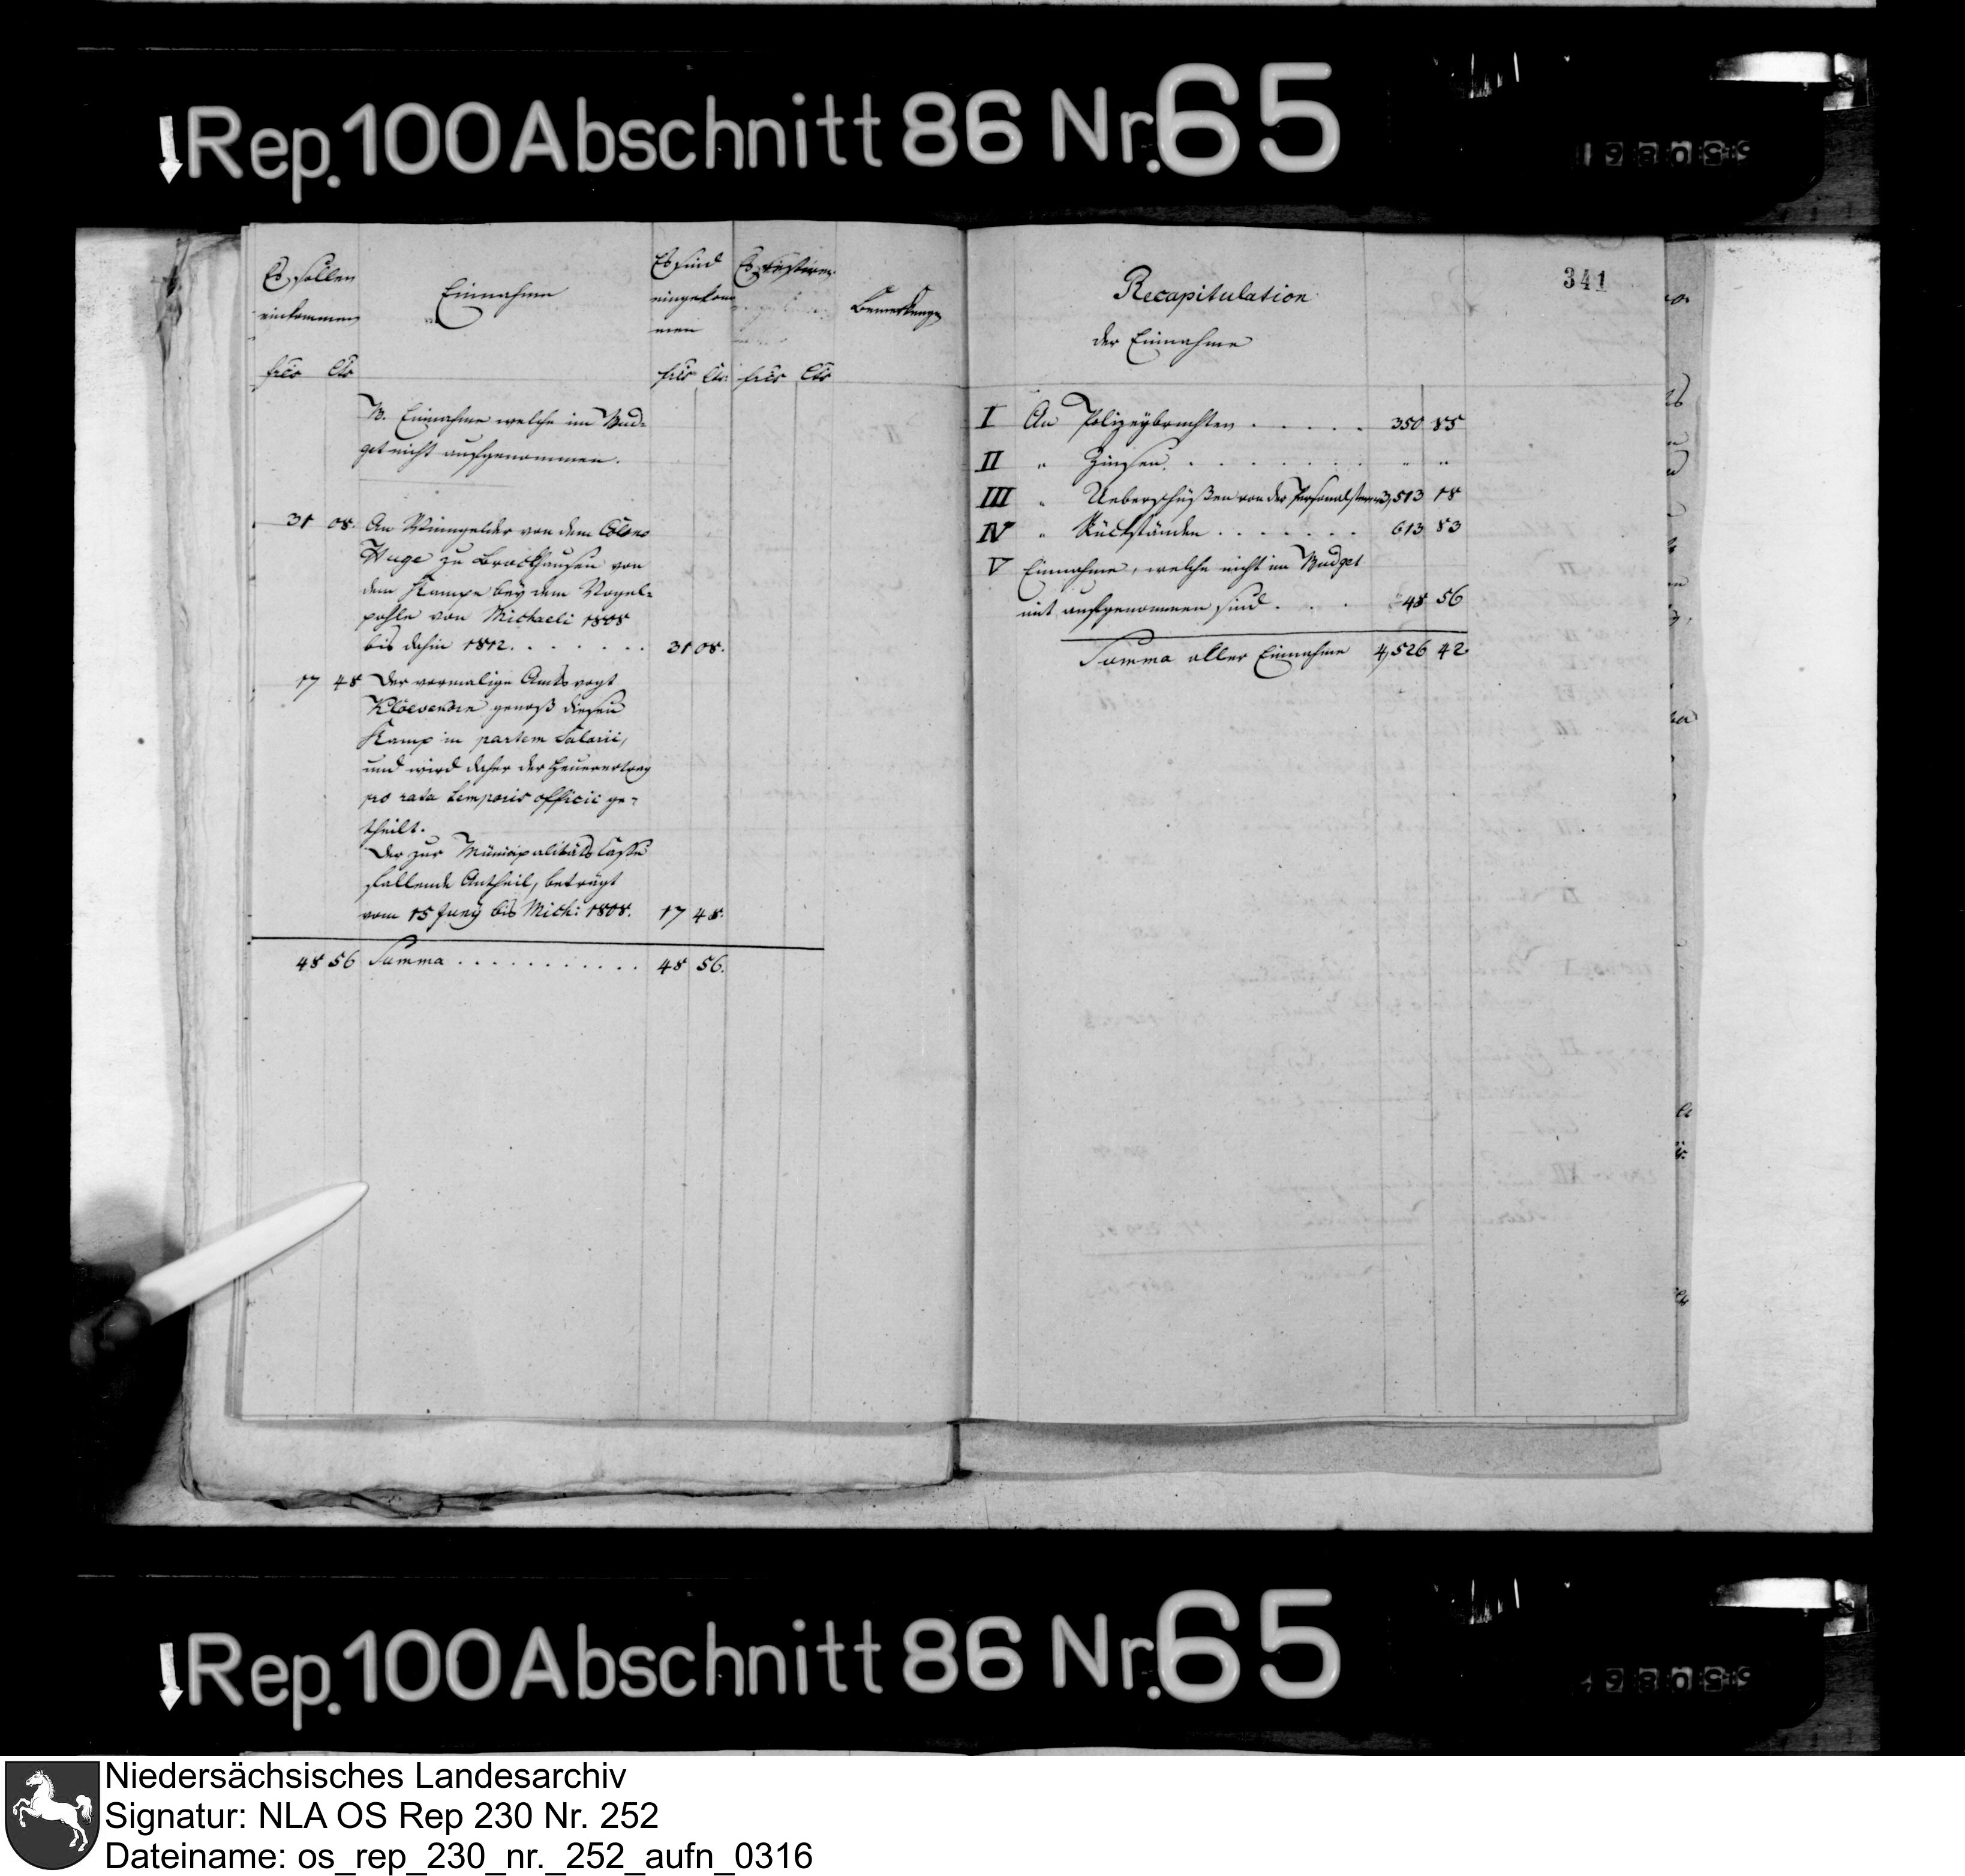 Rep. 100 Abschnitt 86 Nr. 65
Es sollen einkommen
frcs Cts
Einnahme
Es sind eingekommen
frcs Cts
Es restiren
frcs Cts
Bemerkungen
B. Einnahme welche im Bud-
get nicht aufgenommen.
31 08. An Winngelder von dem Colono
Huge zu Brockhausen von
dem Kampe bey dem Vogel-
pohle von Michaeli 1808
bis dahin 1812. . . . . . . 31 08.
17 48 Der vormalige Amtsvogt
genoß diesen
Kamp in partem Salarii,
und wird daher der Heuerertrag
pro rata temporis officii ge-
theilt.
Der zur Municipalitäts Casse
fallende Antheil, beträgt
vom 15 Juny bis Mich: 1808. 17 48.
48 56 Summa . . . . . . . . . . . 48 56.
341
Recapitulation
der Einnahme
I An Polizeybruchten . . . . . 350 85
II " Zinsen . . . . . . . " "
III " Ueberschüßen von der Personalsteuer 3,513 18
IV " Rückständen . . . . . . . 613 83
V Einnahme, welche nicht im Budget
mit aufgenommen sind. . . . 48 56
Summa aller Einnahme 4,526 42
Rep. 100 Abschnitt 86 Nr. 65
Niedersächsisches Landesarchiv
Signatur: NLA OS Rep 230 Nr. 252
Dateiname: os_rep_230_nr._252_aufn_0316